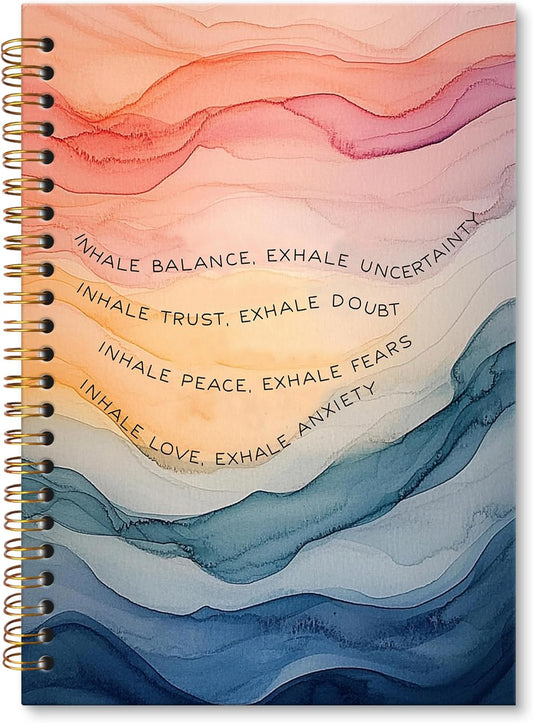 INHALE BALANCE, EXHALE UNCERTAINTY
INHALE TRUST, EXHALE DOUBT
INHALE PEACE, EXHALE FEARS
INHALE LOVE, EXHALE ANXIETY